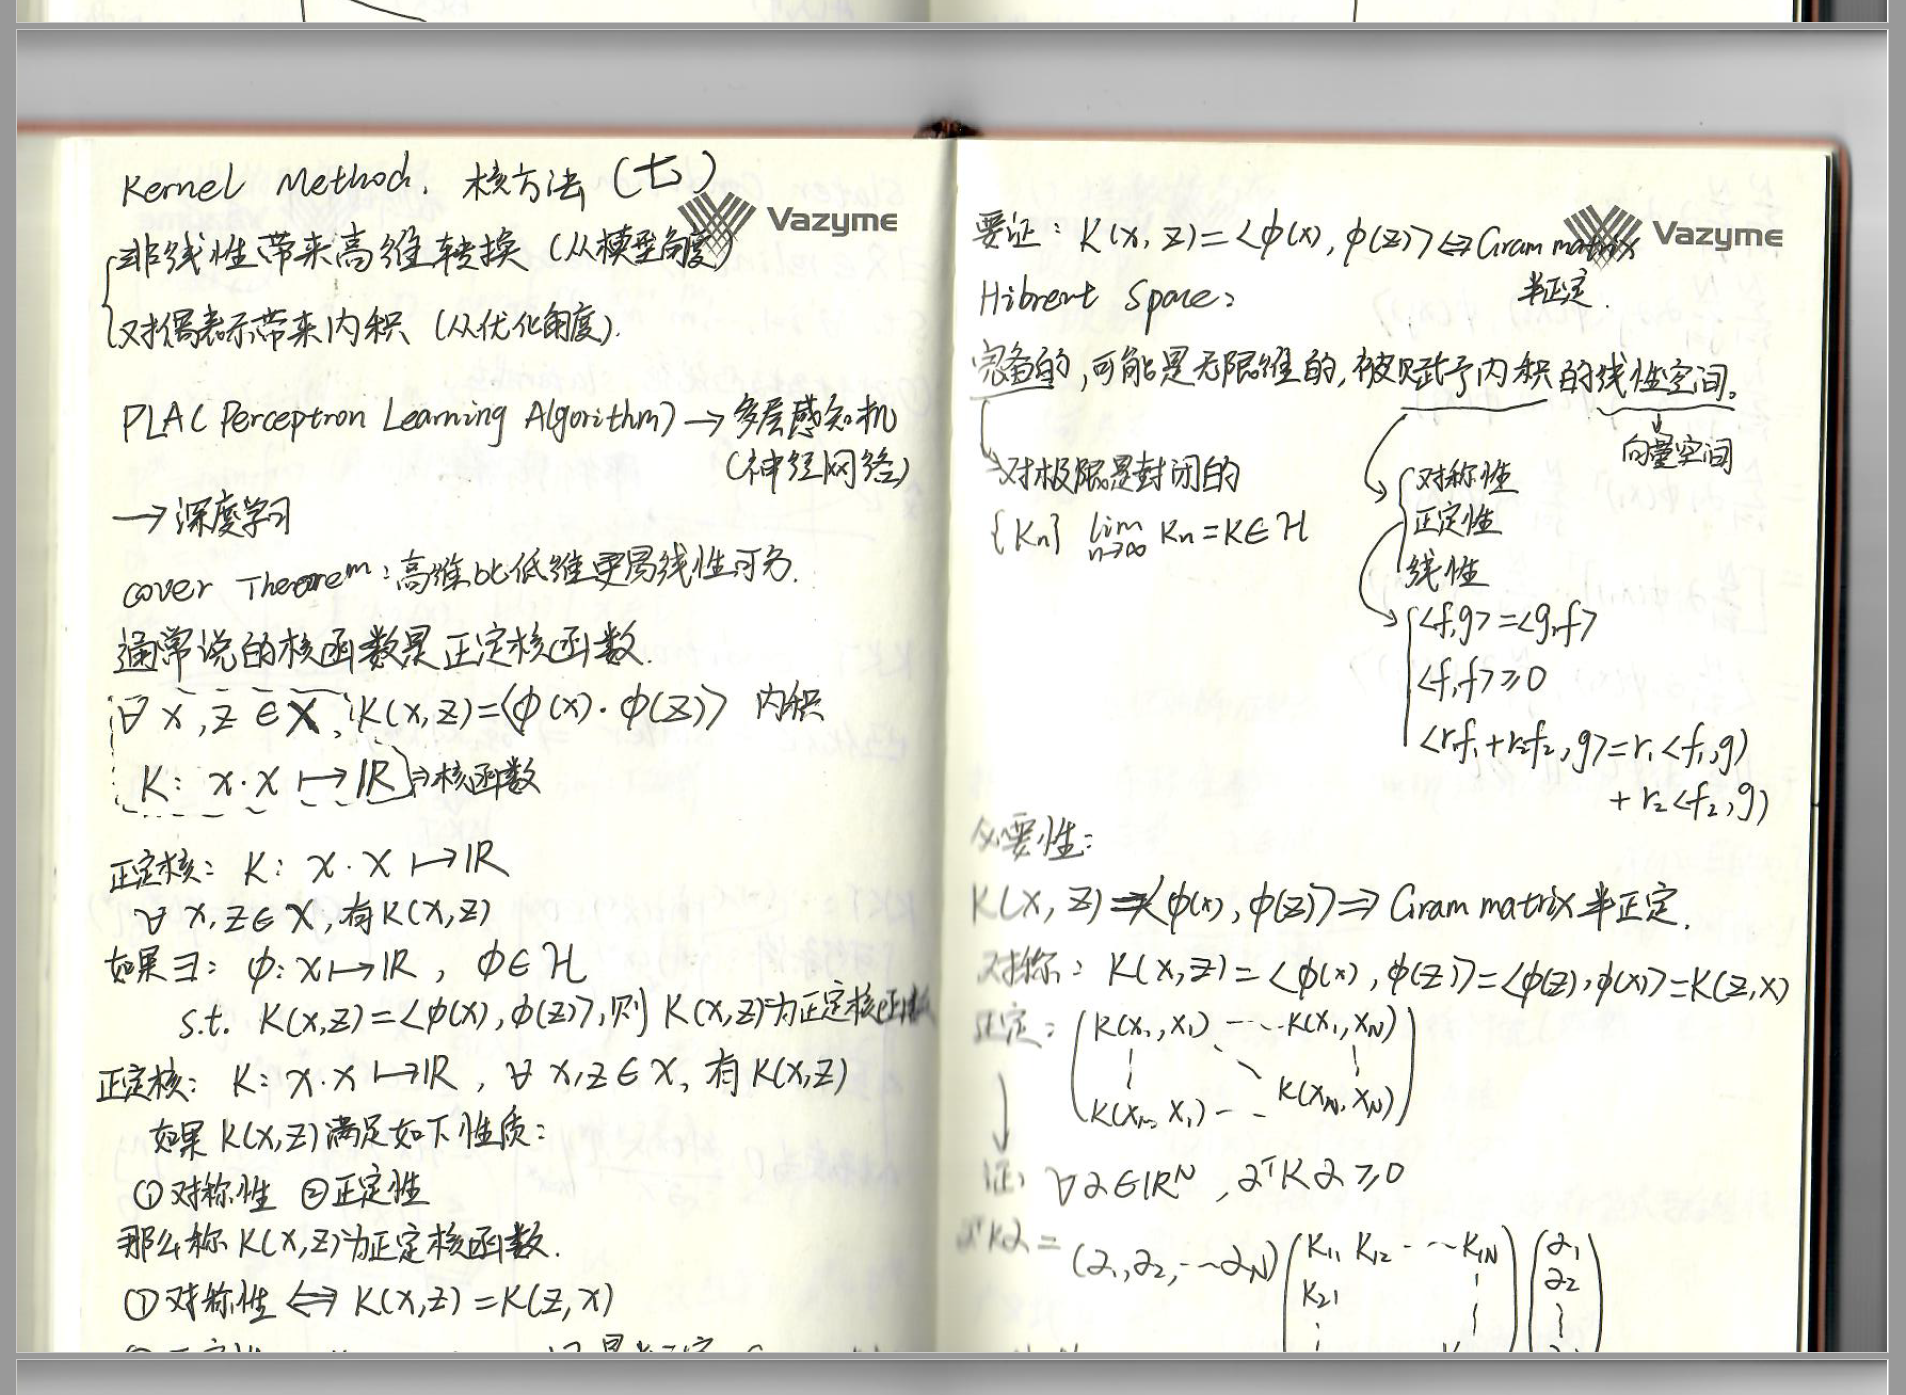 Kernel Method. 核方法 (七)
Vazyme
非线性带来高维转换 (从模型角度)
对偶表示带来内积 (从优化角度).
PLA( Perceptron Learning Algorithm) → 多层感知机
(神经网络)
→ 深度学习
Cover Theorem: 高维比低维更易线性可分.
通常说的核函数是正定核函数.
∀ x, z ∈ X, K(x,z)=<φ(x)·φ(z)> 内积
K: x·x ↦ IR ⇒核函数
正定核: K: x·x ↦ IR
∀ x,z∈X, 有K(x,z)
如果∃: φ: x↦IR, φ∈H
s.t. K(x,z)=<φ(x),φ(z)>,则 K(x,z)为正定核函数
正定核: K: x·x ↦IR, ∀ x,z∈X, 有K(x,z)
如果 K(x,z)满足如下性质:
①对称性 ②正定性
那么称 K(x,z)为正定核函数.
①对称性 ⇔ K(x,z)=K(z,x)
Vazyme
要证: K(x,z)=<φ(x),φ(z)>⇔Gram matrix
半正定.
Hibrent Space:
完备的,可能是无限维的,被赋予内积的线性空间。
向量空间
对极限是封闭的
{Kn} lim n→∞ Kn=K∈H
对称性
正定性
线性
<f,g>=<g,f>
<f,f>≥0
<r₁f₁+r₂f₂,g>=r₁<f₁,g>
+r₂<f₂,g>
必要性:
K(x,z)=<φ(x),φ(z)>⇒ Gram matrix 半正定.
对称: K(x,z)=<φ(x),φ(z)>=<φ(z),φ(x)>=K(z,x)
正定: K(x₁,x₁) --- K(x₁,xN)
K(xN,x₁) -- K(xN,xN)
证: ∀α∈IRᴺ, αᵀKα≥0
αᵀKα=(α₁,α₂,--αN) K₁₁ K₁₂ --- K₁N α₁
K₂₁ α₂